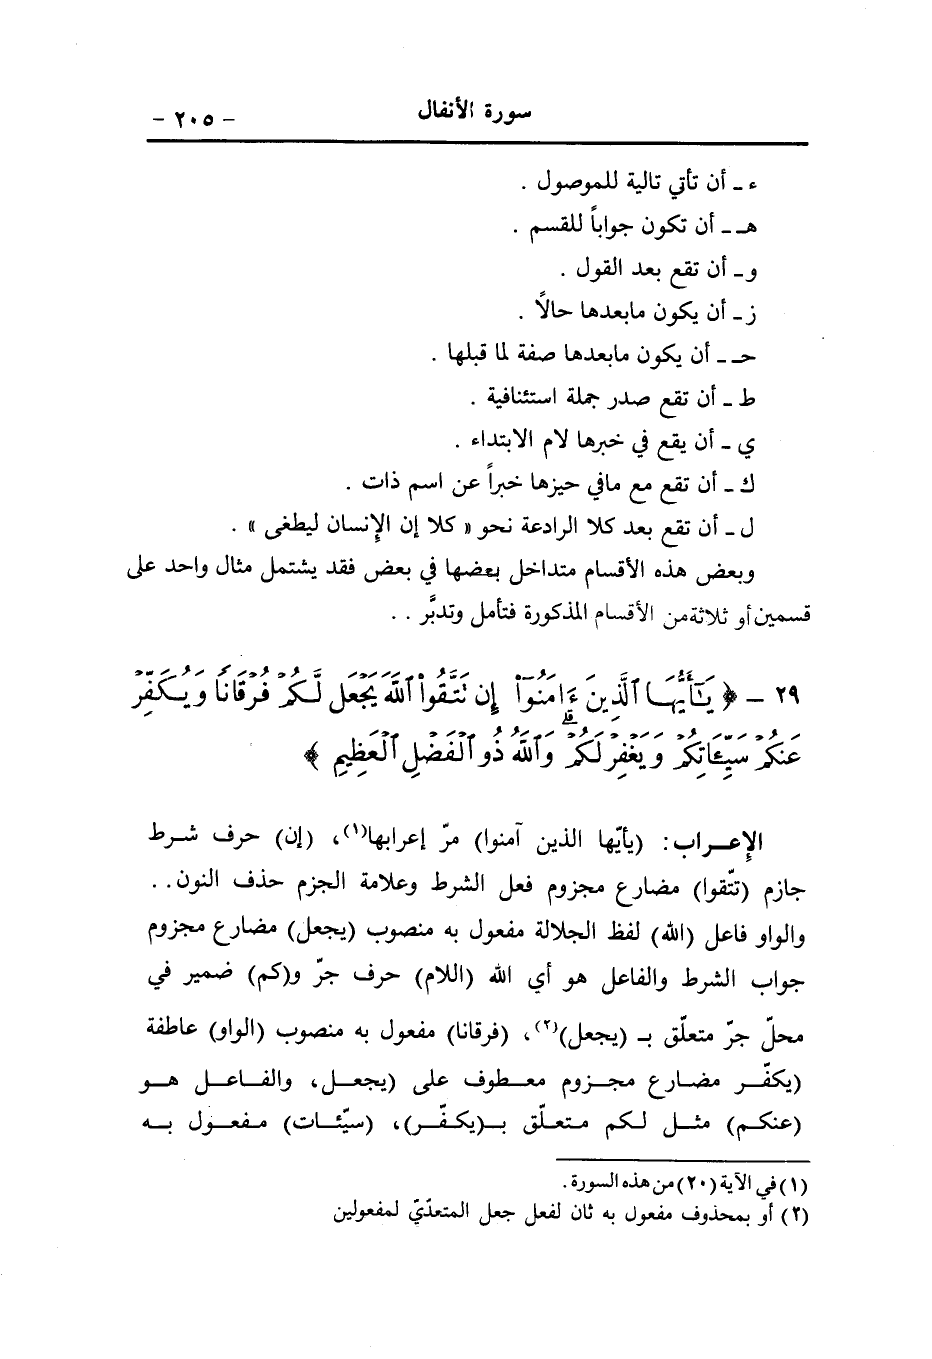 سورة الأنفال - ٢٠٥ -
ء ـ أن تأتي تالية للموصول .
هـ ـ أن تكون جواباً للقسم .
و ـ أن تقع بعد القول .
ز ـ أن يكون مابعدها حالاً .
حـ ـ أن يكون مابعدها صفة لما قبلها .
ط ـ أن تقع صدر جملة استئنافية .
ي ـ أن يقع في خبرها لام الابتداء .
ك ـ أن تقع مع مافي حيزها خبراً عن اسم ذات .
ل ـ أن تقع بعد كلا الرادعة نحو « كلا إن الإنسان ليطغى » .
وبعض هذه الأقسام متداخل بعضها في بعض فقد يشتمل مثال واحد على
قسمين أو ثلاثة من الأقسام المذكورة فتأمل وتدبَّر . .
٢٩ - ﴿ يَٰٓأَيُّهَا ٱلَّذِينَ ءَامَنُوٓا۟ إِن تَتَّقُوا۟ ٱللَّهَ يَجْعَل لَّكُمْ فُرْقَانًا وَيُكَفِّرْ
عَنكُمْ سَيِّـَٔاتِكُمْ وَيَغْفِرْ لَكُمْ ۗ وَٱللَّهُ ذُو ٱلْفَضْلِ ٱلْعَظِيمِ ﴾
الإعـراب : (يأيّها الذين آمنوا) مرّ إعرابها(١)، (إن) حرف شـرط
جازم (تتّقوا) مضارع مجزوم فعل الشرط وعلامة الجزم حذف النون . .
والواو فاعل (الله) لفظ الجلالة مفعول به منصوب (يجعل) مضارع مجزوم
جواب الشرط والفاعل هو أي الله (اللام) حرف جرّ و(كم) ضمير في
محلّ جرّ متعلّق بـ (يجعل)(٢)، (فرقانا) مفعول به منصوب (الواو) عاطفة
(يكفّر مضارع مجـزوم معـطوف على (يجعـل، والفـاعـل هـو
(عنكـم) مثـل لكم متعلّق بـ(يكفّـر)، (سيّئـات) مفعـول بـه
(١) في الآية (٢٠) من هذه السورة .
(٢) أو بمحذوف مفعول به ثان لفعل جعل المتعدّيّ لمفعولين